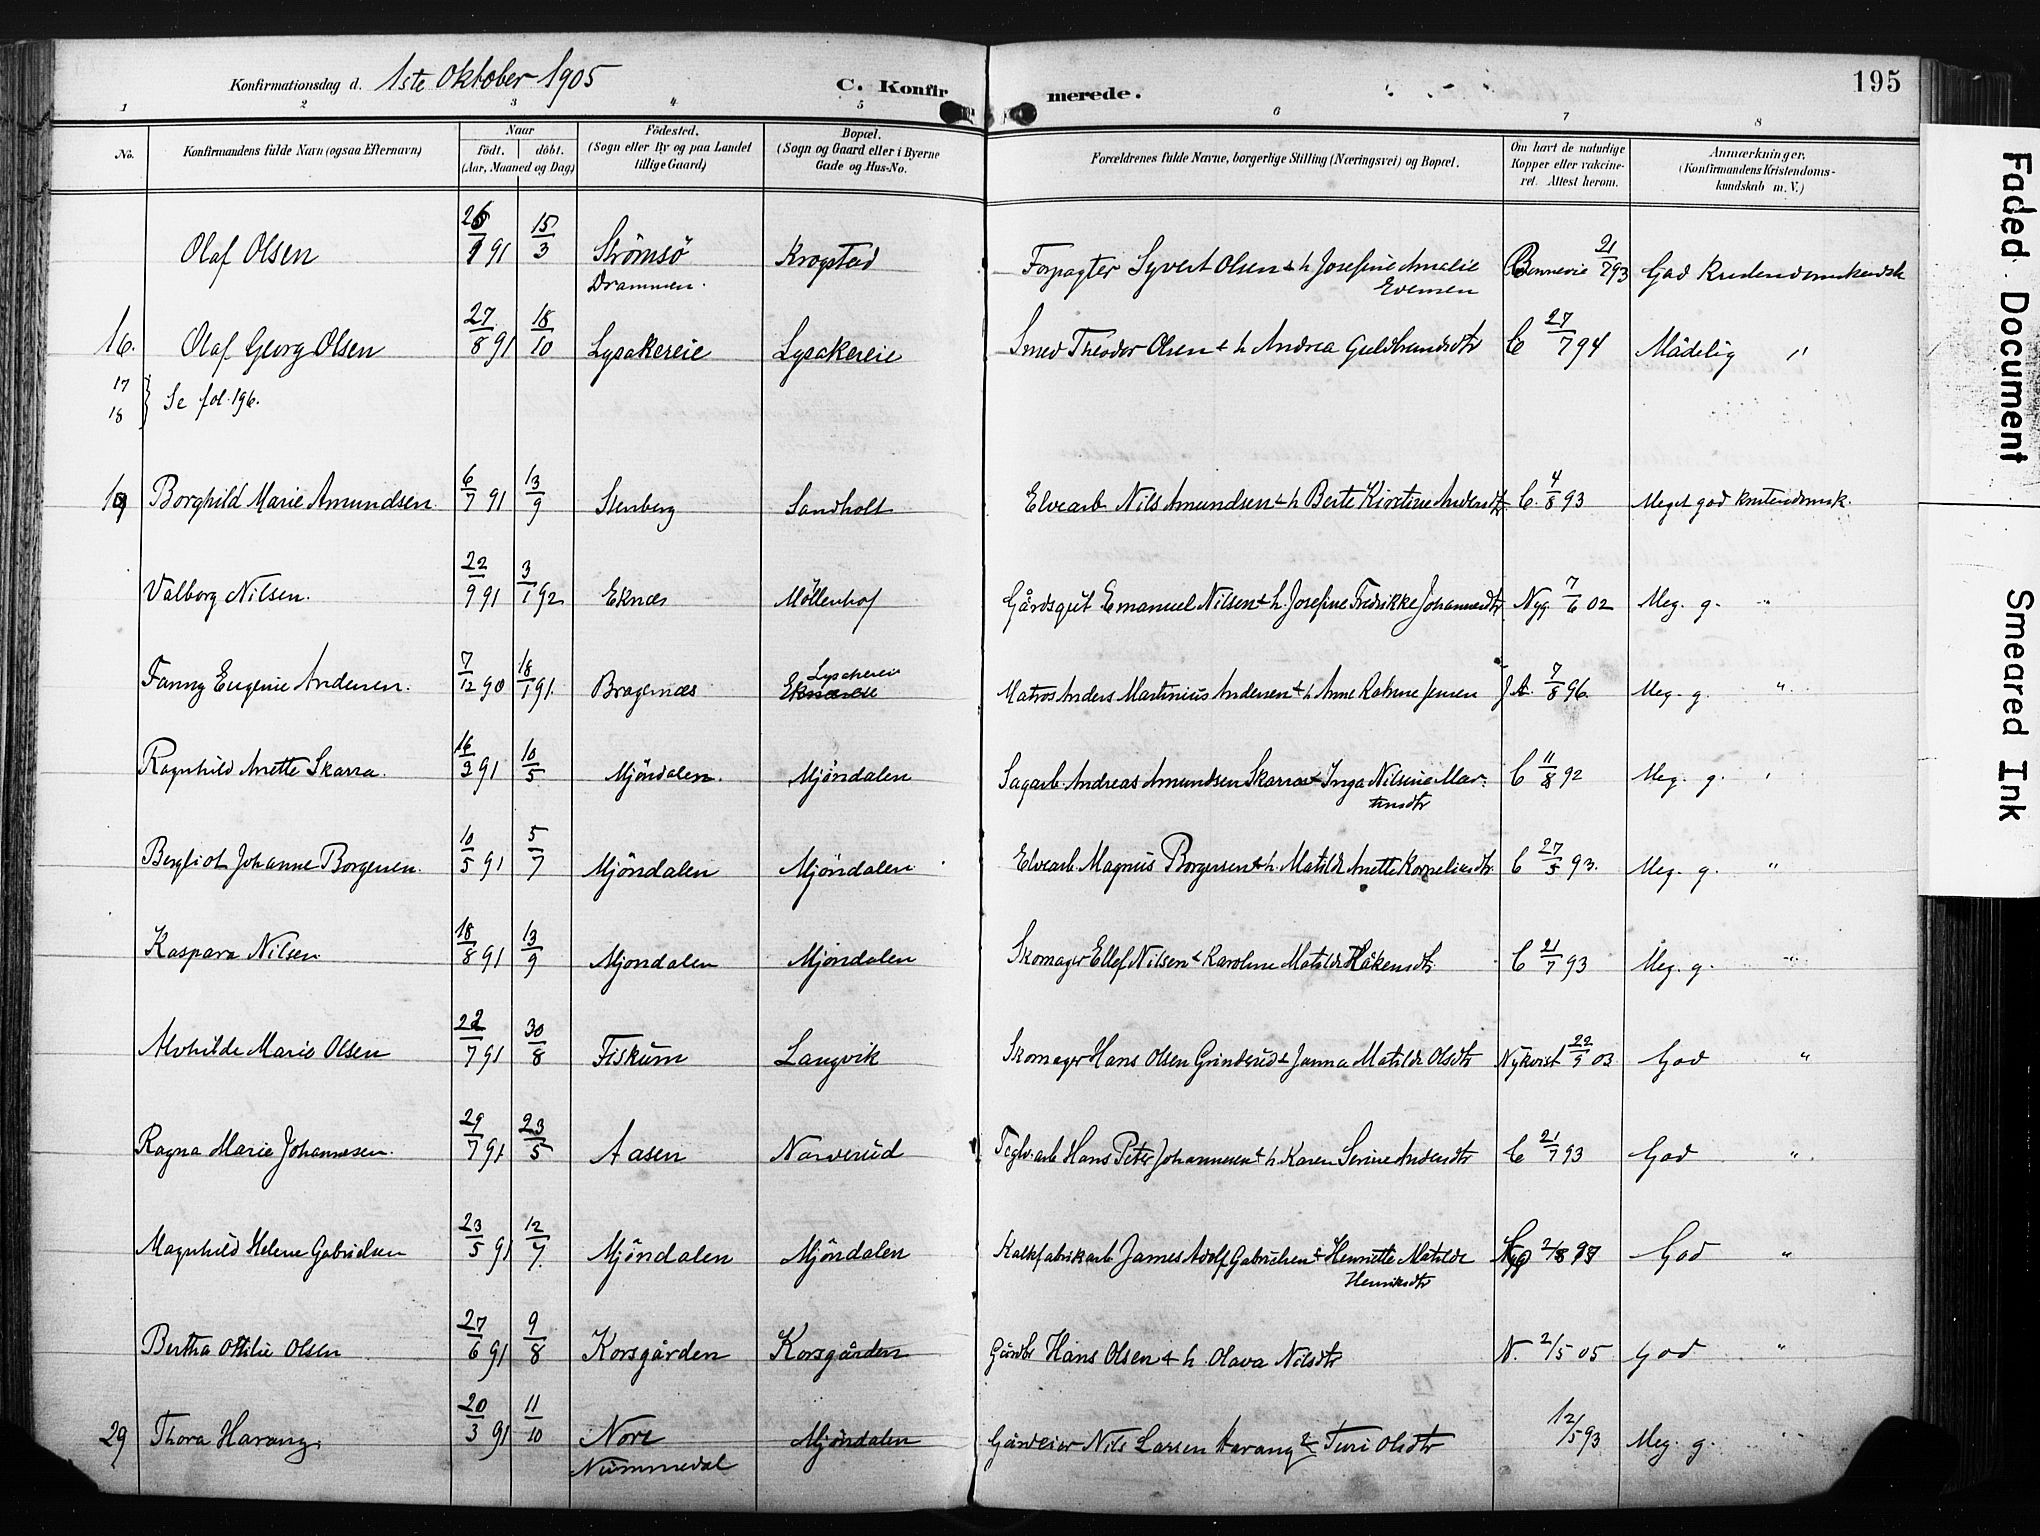 Konfirmationsdag d. 1ste Oktober 1905 C. Konfirmerede. 195
1 2 3 4 5 6 7 8
No. Konfirmandens fulde Navn (ogsaa Efternavn) Naar födt. döbt. (Aar, Maaned og Dag) Födested. (Sogn eller By og paa Landet tillige Gaard) Bopæl. (Sogn og Gaard eller i Byerne Gade og Hus-No. Forældrenes fulde Navne, borgerlige Stilling (Næringsvei) og Bopæl. Om havt de naturlige Kopper eller vakcineret. Attest herom. Anmærkninger. (Konfirmandens Kristendomskundskab m. V.)
Olaf Olsen 91 15/3 Strömsö Drammen. Krogstad Forpagter Syvert Olsen & h Josefine Amalie Evensen 21/7 93 God
16. Olaf Georg Olsen 27/8 91 18/10 Lysakereie Lysakereie Smed Theodor Olsen & h Andrea Guldbrandsdtr C 27/7 94 Mådelig "
17
18 } Se fol. 196.
19 Borghild Marie Amundsen 6/7 91 13/9 Stenberg Sandholt Elvearb. Nils Amundsen & h Berte Kirstine Andersdtr. C. 4/8 93 Meget god kristendomsk.
Valborg Nilsen. 22/9 91 3/1 92 Eknæs Möllenhof Gårdsgut Emanuel Nilsen & h. Josefine Fredrikke Johannesdtr Nyg. 7/6 02 Meg. g. "
Fanny Eugenie Andersen. 7/12 90 18/1 91 Bragernæs Matros Anders Martinius Andersen & h Anne Katrine Jensen 7/8 96 Meg. g. "
Ragnhild Anette Skarra. 16/3 91 10/5 Mjöndalen. Mjöndalen Sagarb. Andreas Amundsen Skarra & Inga Nilsine Martinsdtr C 11/8 92 Meg. g. "
Bergliot Johanne Borgersen. 10/5 91 5/7 Mjöndalen Mjöndalen Elvearb. Magnus Borgersen & h. Matilde Anette Korneliusdtr. C 27/5 93. Meg. g. "
Kaspara Nilsen 18/8 91 13/9 Mjöndalen Mjöndalen Skomager Ellef Nilsen & Karoline Matilde Håkensdtr C 21/7 93 Meg. g. "
Alvhilde Marie Olsen 22/7 91 30/8 Fiskum Langvik Skomager Hans Olsen Grinderud & Janna Matilde Olsdtr Nykvist 22/9 03 God "
Ragna Marie Johannesen. 29/7 91 23/5 Aasen Narverud Teglv.arb Hans Peter Johannesen & h. Karen Serine Andersdtr C 21/7 93 God "
Magnhild Helene Gabrielsen 23/5 91 12/7 Mjöndalen Mjöndalen Kalkfabrikarb James Adolf Gabrielsen & Henriette Matilde Henriksdtr God "
Bertha Ottilie Olsen 27/6 91 9/8 Korsgården Korsgården Gårdbr Hans Olsen & h. Olava Nilsdtr N. 2/5 05 God "
29 Thora Harang. 20/3 91 11/10 Nore Nummedal Mjöndalen Gårdeier Nils Larsen Harang & Turi Olsdtr 12/5 93 Meg. g. "
Faded Document
Smeared Ink